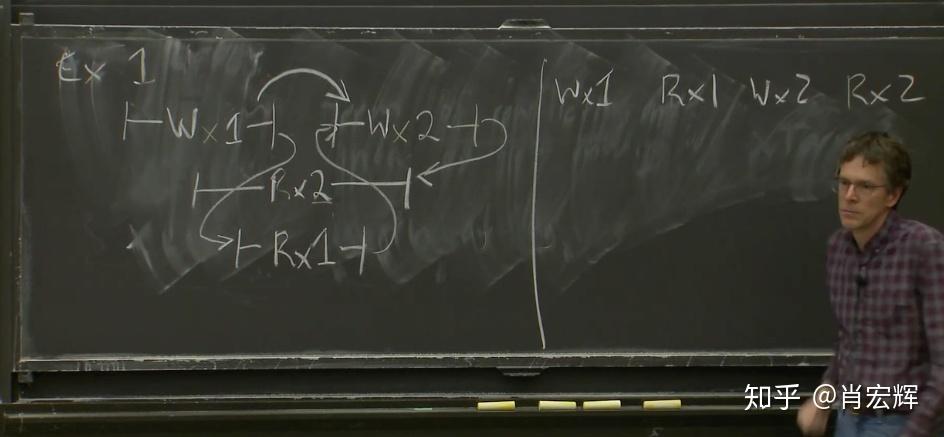 Ex 1
Wx1 Wx2
Rx2
Rx1
Wx1 Rx1 Wx2 Rx2
知乎 @肖宏辉